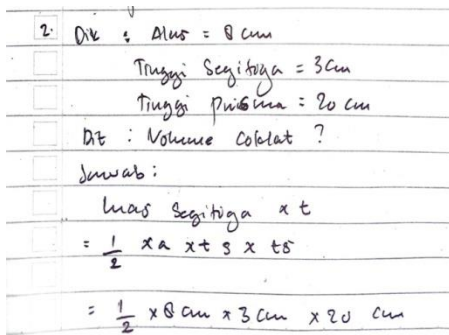 2. Dik : Alas = 8 cm
Tinggi Segitiga = 3 cm
Tinggi prisma = 20 cm
Dit : Volume Coklat ?
Jawab :
Luas Segitiga x t
= 1/2 x a x t s x ts
= 1/2 x 8 cm x 3 cm x 20 cm